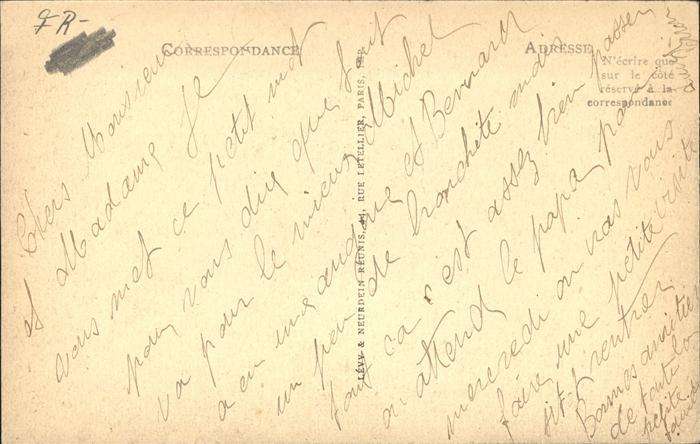 FR-
CORRESPONDANCE
ADRESSE
N'écrire que
sur le côté
réservé à la
correspondance
LÉVY & NEURDEIN RÉUNIS, 44, RUE LETELLIER, PARIS
Chers Monsieur
et Madame Je
vous met ce petit mot
pour vous dire que tout
va pour le mieux Michel
a eu une et Bernard
un peu de bronchite mais
tout ça c'est assez bien passer
on attend le papa pour
mercredi on iras vous
faire une petite visite
sit rentrer
Bonnes amitiés
de toute la
petite
famille